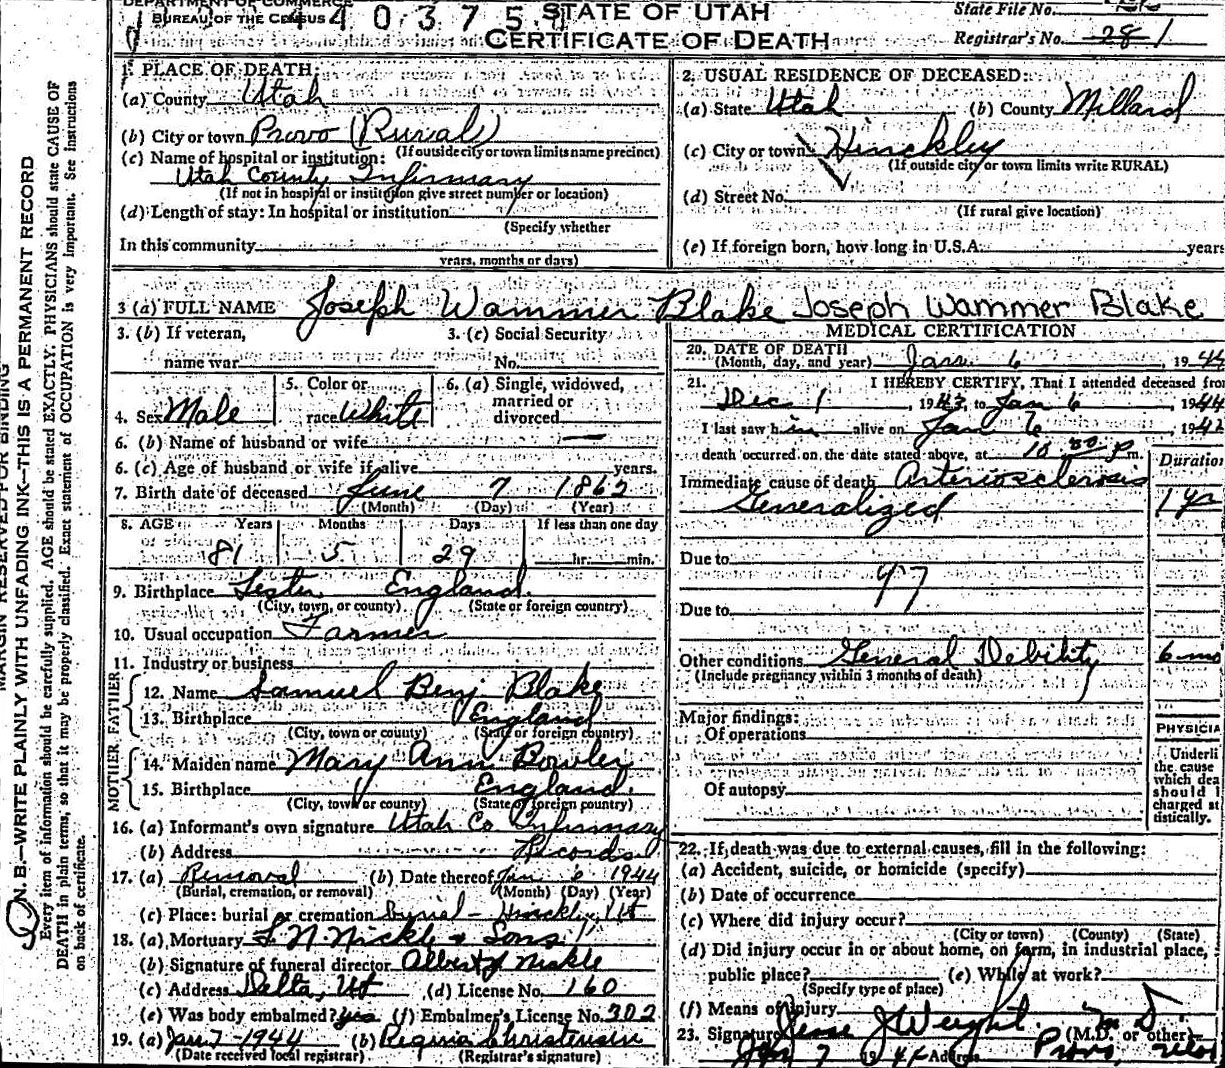 DEPARTMENT OF COMMERCE
BUREAU OF THE CENSUS
4 4 0 3 7 5
STATE OF UTAH
CERTIFICATE OF DEATH
State File No.
Registrar's No. 28 1
MARGIN RESERVED FOR BINDING
N. B.—WRITE PLAINLY WITH UNFADING INK—THIS IS A PERMANENT RECORD
Every item of information should be carefully supplied. AGE should be stated EXACTLY. PHYSICIANS should state CAUSE OF
DEATH in plain terms, so that it may be properly classified. Exact statement of OCCUPATION is very important. See instructions
on back of certificate.
1. PLACE OF DEATH:
(a) County Utah
(b) City or town Provo (Rural)
(If outside city or town limits name precinct)
(c) Name of hospital or institution:
Utah County Infirmary
(If not in hospital or institution give street number or location)
(d) Length of stay: In hospital or institution
(Specify whether
In this community
years, months or days)
2. USUAL RESIDENCE OF DECEASED:
(a) State Utah (b) County Millard
(c) City or town Hinckley
(If outside city or town limits write RURAL)
(d) Street No.
(If rural give location)
(e) If foreign born, how long in U.S.A. years
3 (a) FULL NAME Joseph Wammer Blake Joseph Wammer Blake
3. (b) If veteran, 3. (c) Social Security
name war No.
4. Sex Male 5. Color or race White 6. (a) Single, widowed, married or divorced
6. (b) Name of husband or wife —
6. (c) Age of husband or wife if alive years.
7. Birth date of deceased June 7 1862
(Month) (Day) (Year)
8. AGE Years Months Days If less than one day
81 5 29 hr. min.
9. Birthplace Lester England
(City, town, or county) (State or foreign country)
10. Usual occupation Farmer
11. Industry or business
FATHER
12. Name Samuel Benj Blake
13. Birthplace England
(City, town or county) (State or foreign country)
MOTHER
14. Maiden name Mary Ann Bowler
15. Birthplace England
(City, town or county) (State or foreign country)
16. (a) Informant's own signature Utah Co Infirmary
(b) Address Records
17. (a) Removal (b) Date thereof Jan 1944
(Burial, cremation, or removal) (Month) (Day) (Year)
(c) Place: burial or cremation Burial - Hinckley, Ut
18. (a) Mortuary L N Nickle & Sons
(b) Signature of funeral director Albert J Nickle
(c) Address Delta, Ut (d) License No. 160
(e) Was body embalmed? yes (f) Embalmer's License No. 302
19. (a) Jan 7 - 1944 (b) Regina Christensen
(Date received local registrar) (Registrar's signature)
MEDICAL CERTIFICATION
20. DATE OF DEATH
(Month, day, and year) Jan 6, 1944
21. I HEREBY CERTIFY, That I attended deceased from
Dec 1, 1943, to Jan 6, 1944
I last saw him alive on Jan 6, 194
death occurred on the date stated above, at 10 30 P m.
Duration
Immediate cause of death Arteriosclerosis
Generalized 1 yr
Due to
97
Due to
Other conditions General Debility 6 mo
(Include pregnancy within 3 months of death)
Major findings:
Of operations
Of autopsy
PHYSICIA
Underli
the cause
which dea
should
charged st
tistically.
22. If death was due to external causes, fill in the following:
(a) Accident, suicide, or homicide (specify)
(b) Date of occurrence
(c) Where did injury occur?
(City or town) (County) (State)
(d) Did injury occur in or about home, on farm, in industrial place,
public place? (e) While at work?
(Specify type of place)
(f) Means of injury
23. Signature Jesse J Weight M D (M.D. or other)
Jan 7 1944 Address Provo, Utah